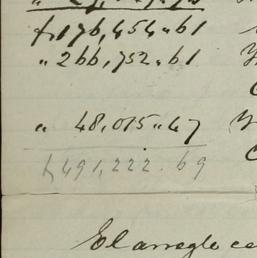 $176,454.61
" 266,752.61
" 48,015.47
$491,222.69
El arreglo